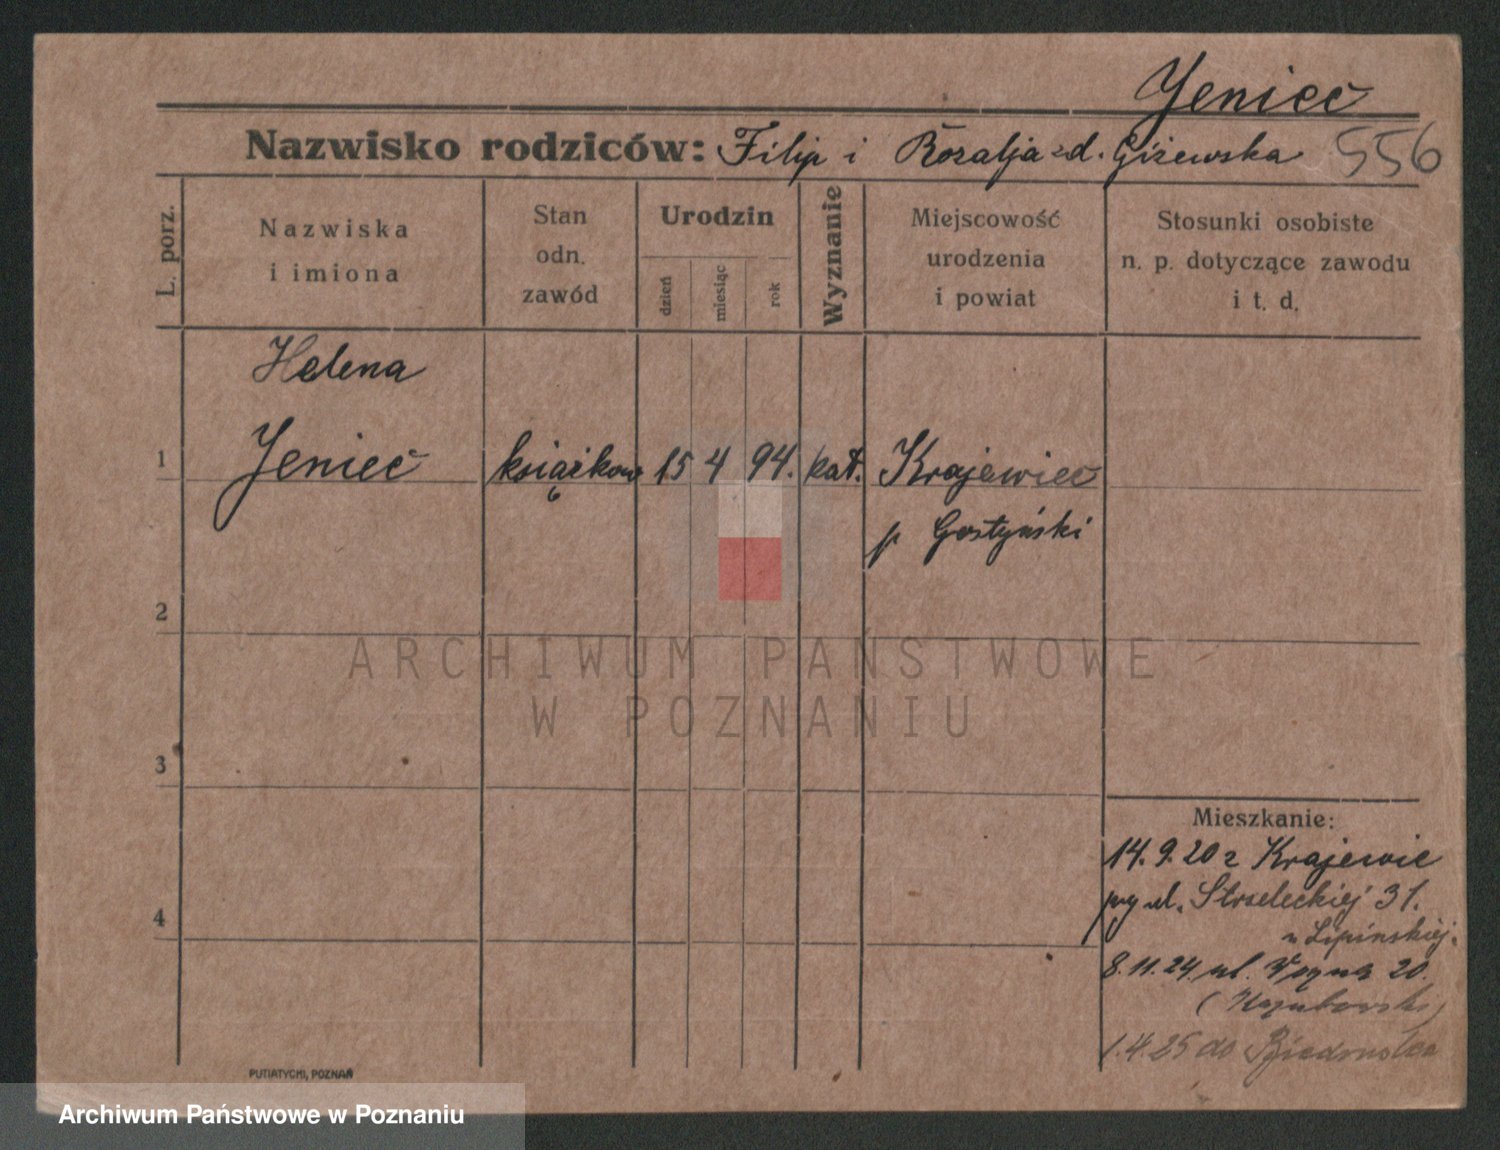 Jeniec
Nazwisko rodziców: Filip i Rozalja zd. Giżewska 556
L. porz.
Nazwiska
i imiona
Stan
odn.
zawód
Urodzin
dzień
miesiąc
rok
Wyznanie
Miejscowość
urodzenia
i powiat
Stosunki osobiste
n. p. dotyczące zawodu
i t. d.
Helena
1 Jeniec książkow 15 4 94. kat. Krajewice
p Gostyński
2
3
4
ARCHIWUM PAŃSTWOWE
W POZNANIU
Mieszkanie:
14.9.20 z Krajewic
przy ul. Strzeleckiej 31.
u Lipińskiej.
8.11.24. ul. 20.
1.4.25 do
PUTIATYCKI, POZNAŃ
Archiwum Państwowe w Poznaniu